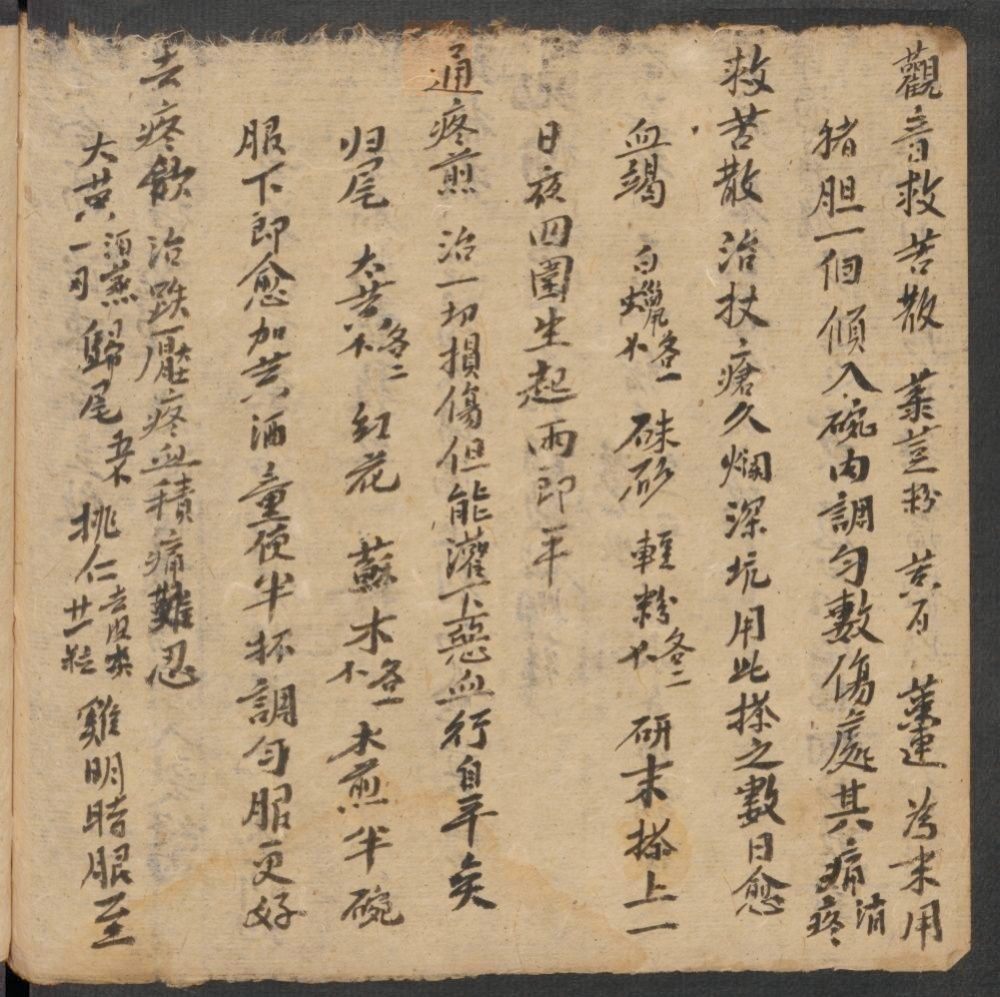 觀音救苦散 菉荳粉 黄百 黄連 為末用
猪胆一個傾入碗内調勻敷傷處其痛消疼
救苦散 治杖瘡久爛深坑用此搽之數日愈
血竭 白蠟 各一 硃砂 輕粉 各二 研末搽上一
日夜四圍生起兩即平
通疼煎 治一切損傷但能灌下惡血行自平矣
归尾 大黄 各二 紅花 蘇木 各一 水煎半碗
服下即愈加黄酒童便半杯調勻服更好
去疼飲 治跌壓疼血積痛難忍
大黄一 酒蒸 歸尾 桃仁 去皮尖 廿一粒 雞明時服至